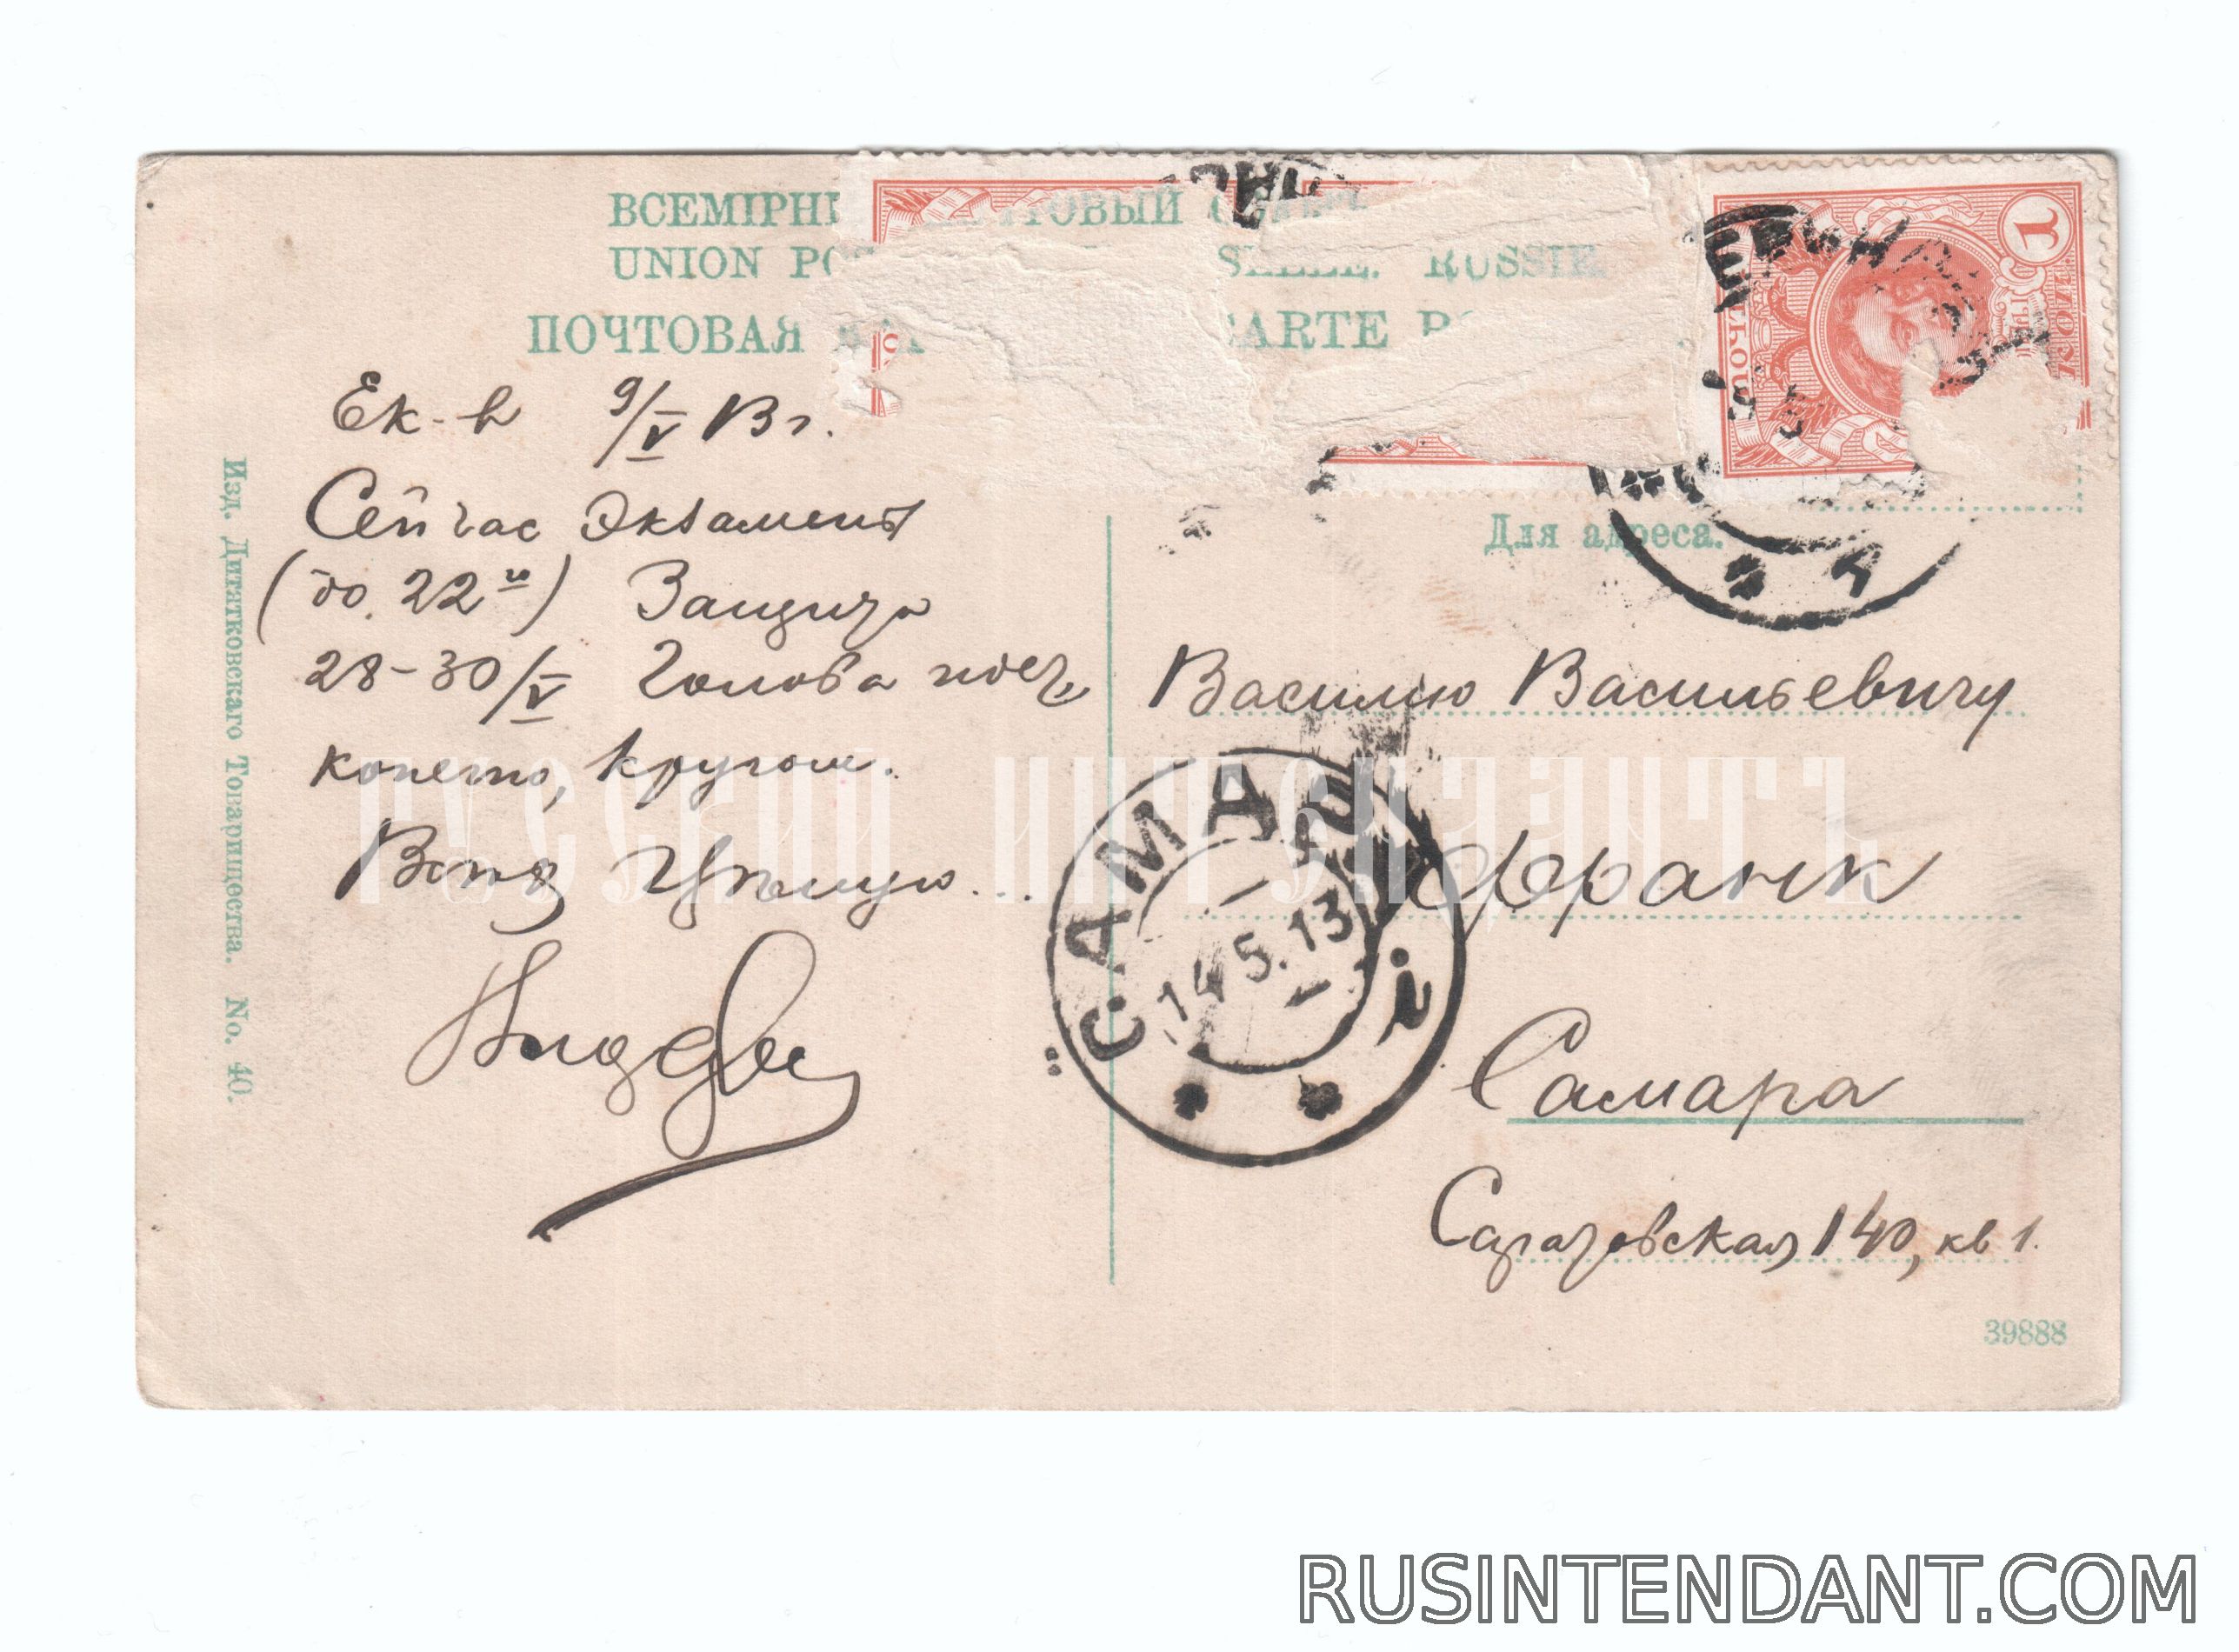 ВСЕМІРН ТОВЫЙ
UNION PO SELLE. RUSSIE
ПОЧТОВАЯ CARTE P
1
КОП.
ПОЧТ
Ек-в 9/V 13 г.
Сейчас экзамены
(до 22го) Защита
28-30/V Голова идет,
конечно, кругом.
Всех Целую...
Для адреса.
Василию Васильевичу
Франк
Самара
Саратовская 140, кв 1.
САМАРА
14 5.13
Изд. Дитятковскаго Товарищества. No. 40.
39888
РУССКИЙ ИНТЕНДАНТЪ
RUSINTENDANT.COM